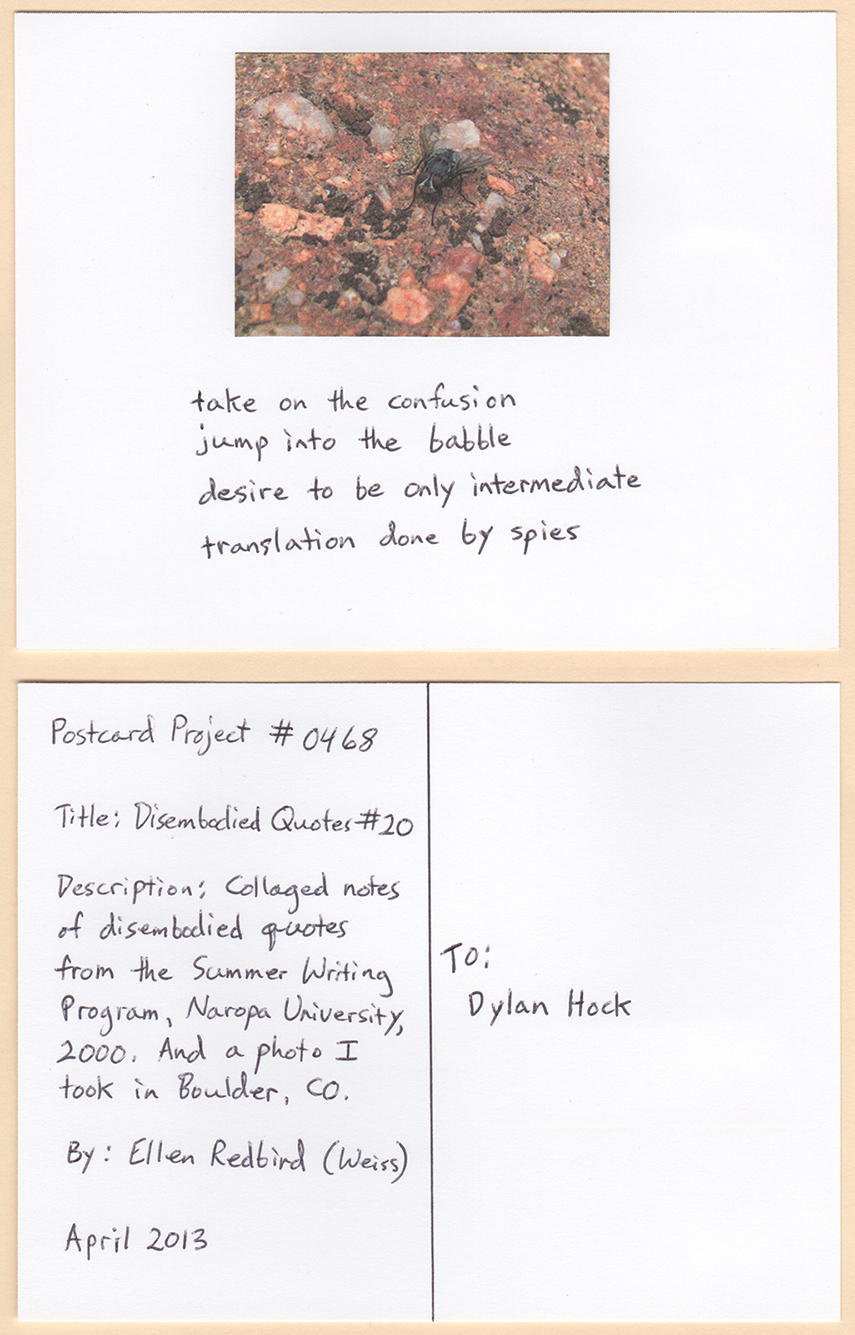 take on the confusion
jump into the babble
desire to be only intermediate
translation done by spies
Postcard Project # 0468
Title: Disembodied Quotes #20
Description: Collaged notes
of disembodied quotes
from the Summer Writing
Program, Naropa University,
2000. And a photo I
took in Boulder, CO.
By: Ellen Redbird (Weiss)
April 2013
To:
Dylan Hock